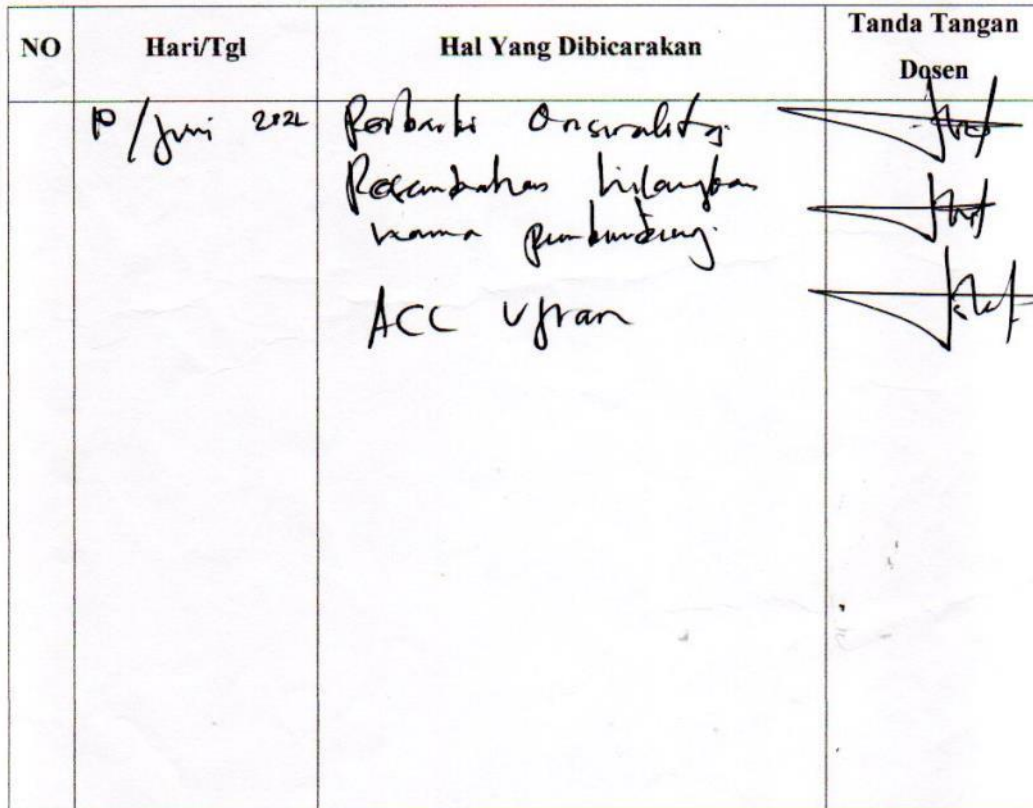 NO
Hari/Tgl
Hal Yang Dibicarakan
Tanda Tangan
Dosen
/ Juni
Perbaiki Orisinalitas
Persembahan hilangkan
nama pembimbing
ACC Ujian